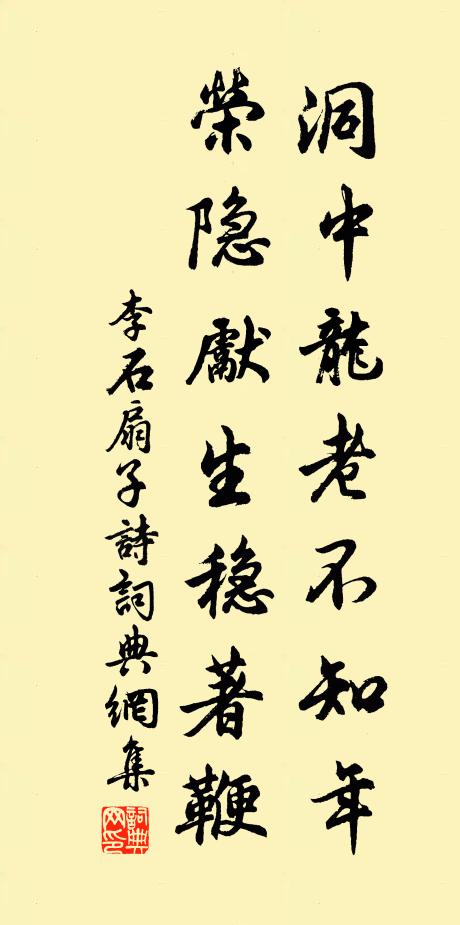 洞中龍老不知年
榮隐獻生穏著鞭
李石扇子詩詞典網集
詞典网印